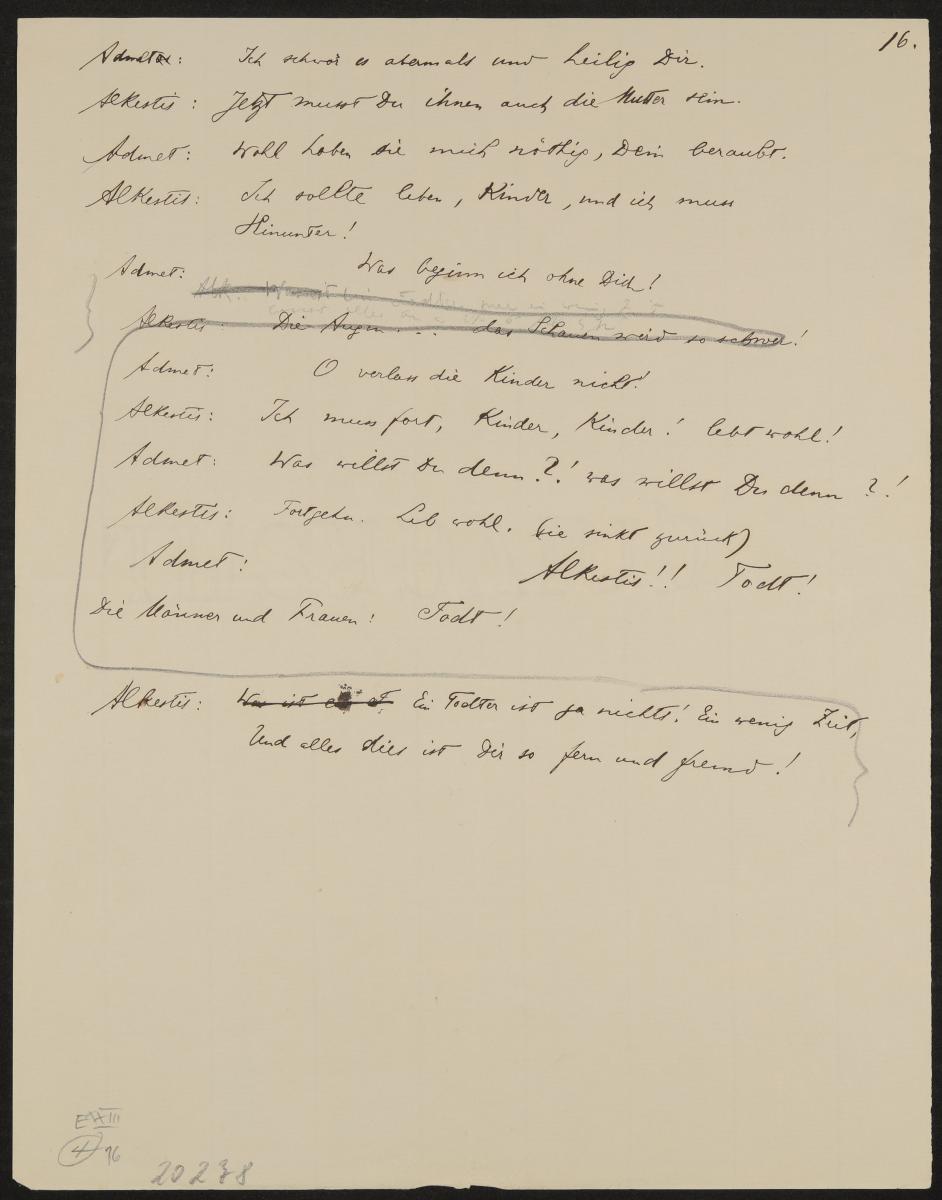 16.
Admet: Ich schwör es abermals und heilig Dir.
Alkestis: Jetzt musst Du ihnen auch die Mutter sein.
Admet: Wohl haben sie mich nöthig, Dein beraubt.
Alkestis: Ich sollte leben, Kinder, und ich muss
Hinunter!
Admet: Was beginn ich ohne Dich!
Alk.: ein wenig Zeit
Alkestis: Die Augen... das Schauen wird so schwer!
Admet: O verlass die Kinder nicht!
Alkestis: Ich muss fort, Kinder, Kinder! lebt wohl!
Admet: Was willst Du denn?! was willst Du denn?!
Alkestis: Fortgehn. Leb wohl. (sie sinkt zurück)
Admet: Alkestis!! Todt!
Die Männer und Frauen: Todt!
Alkestis: Was ist Ein Todter ist ja nichts! Ein wenig Zeit,
Und alles dies ist Dir so fern und fremd!
E XIII
4 16
20278